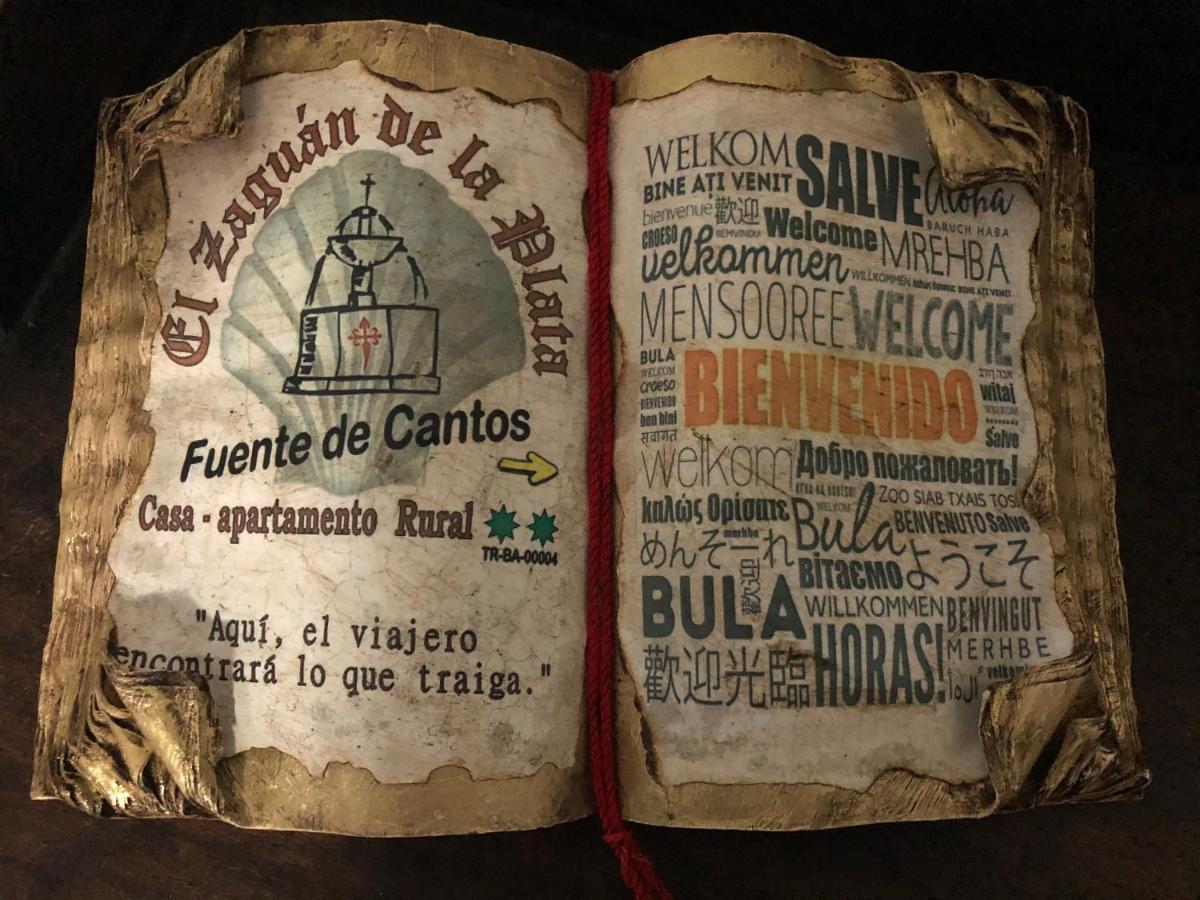 El Zaguán de la Plata
Fuente de Cantos
Casa - apartamento Rural
TR-BA-00004
"Aquí, el viajero
encontrará lo que traiga."
WELKOM SALVE Aloha
BINE AȚI VENIT
bienvenue 歡迎 BARUCH HABA
CROESO BEMVINDU Welcome MREHBA
velkommen WILLKOMMEN BINE AȚI VENIT
MENSOOREE WELCOME
BULA
WELKOM
Croeso BIENVENIDO witaj
BIENVENIDO WELKOM
bon bini Salve
स्वागत
welkom Добро пожаловать!
WELKOM ZOO SIAB TXAIS TOS
καλώς Ορίσατε Bula BENVENUTO Salve
merhbe
めんそーれ 歡迎 ВІТАЄМО ようこそ
BULA WILLKOMMEN BENVINGUT
HORAS! MERHBE
歡迎光臨